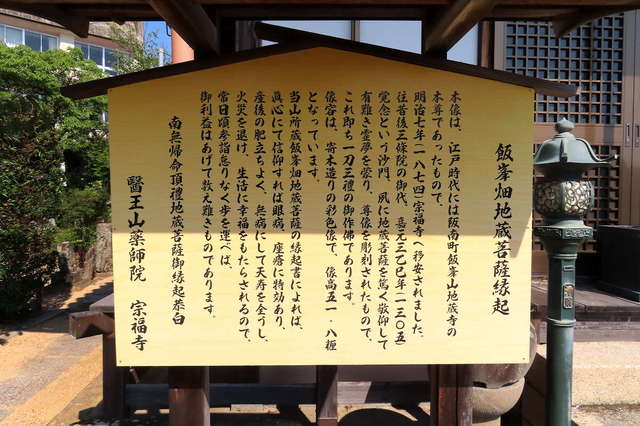 飯峯畑地蔵菩薩縁起
本像は、江戸時代には飯南町飯峯山地蔵寺の
本尊であったもので、
明治七年(一八七四)宗福寺へ移安されました。
往昔後三條院の御代、嘉元三乙巳年(一三〇五)
覚念という沙門、夙に地蔵菩薩を篤く敬仰して
有難き霊夢を蒙り、尊像を彫刻されたもので、
これ即ち一刀三禮の御作佛であります。
像容は、寄木造りの彩色像で、像高五一・八糎
となっています。
当山所蔵飯峯畑地蔵菩薩の縁起書によれば、
眞心にて信仰すれば眼病、痤瘡に特効あり、
産後の肥立ちよく、無病にして天寿を全うし、
火災を退け、生活に幸福をもたらされるので、
常日頃参詣怠りなく歩を運べば、
御利益はあげて教え難きものであります。
南無帰命頂禮地蔵菩薩御縁起恭白
醫王山薬師院 宗福寺